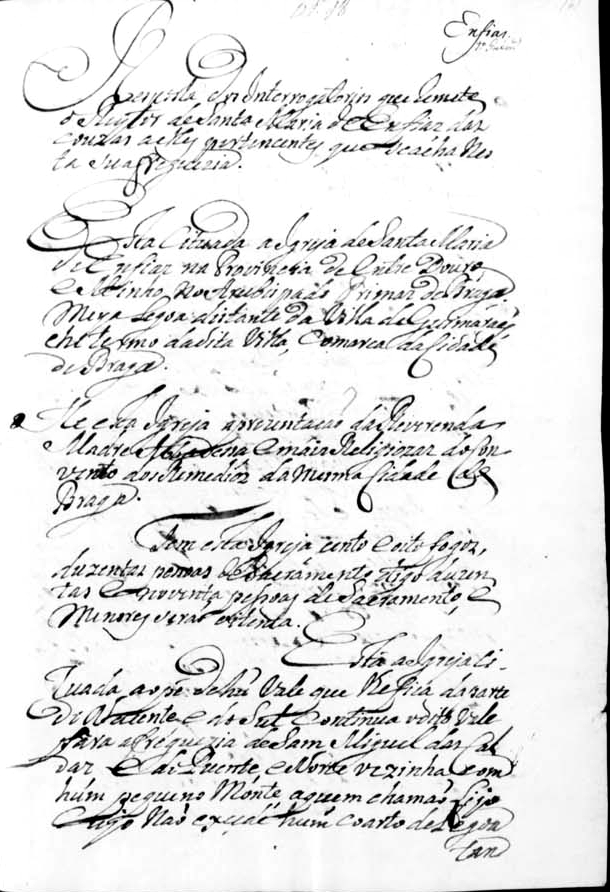 Enfias.
Reposta dos Interrogatorios que Remete
o Reytor de Santa Maria de Enfias das
couzas a elles pertencentes, que se acha nes
ta sua freguezia.
Está Cituada a Igreja de Santa Maria
de Enfias na Provincia de Entre Douro,
e Minho no Arcebispado Primaz de Braga
Meya Legoa distante da Villa de Guimarães
e he termo da dita Villa, Comarca da Cidade
de Braga.
He esta Igreja aprezentação da Reverenda
Madre Abbadeça e mais Religiozas do Con
vento dos Remedios da mesma Cidade de
Braga.
Tem esta Igreja cento e oito fogos,
duzentas pessoas de Sacramento digo duzen
tas e noventa pessoas de Sacramento, e
Menores serão oitenta.
Está a Igreja Ci-
tuada ao pé de hũ Vale que lhe fica da parte
do Nacente e do Sul e continua o dito Vale
para a freguezia de Sam Miguel das Cal
das e do Puente e Norte vezinha com
hum pequeno Monte a quem chamão Lijo
e digo não excede hum coarto de Legoa
Tan